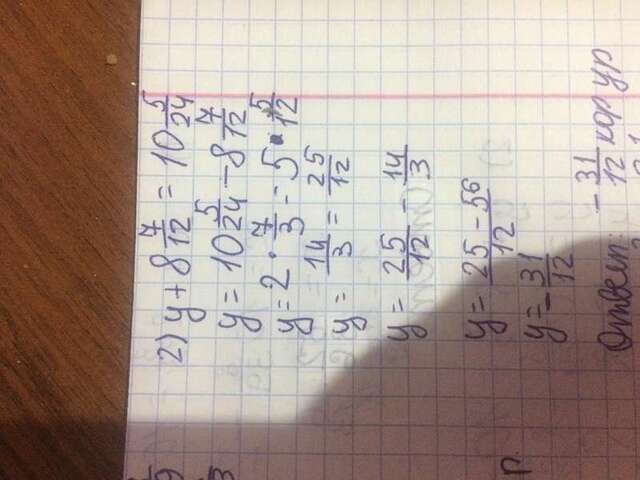 2) y + 8 7/12 = 10 5/24
y = 10 5/24 - 8 7/12
y = 2 · 7/3 = 5 · 5/12
y = 14/3 = 25/12
y = 25/12 - 14/3
y = 25 - 56/12
y = - 31/12
Ответ: - 31/12 кор ур